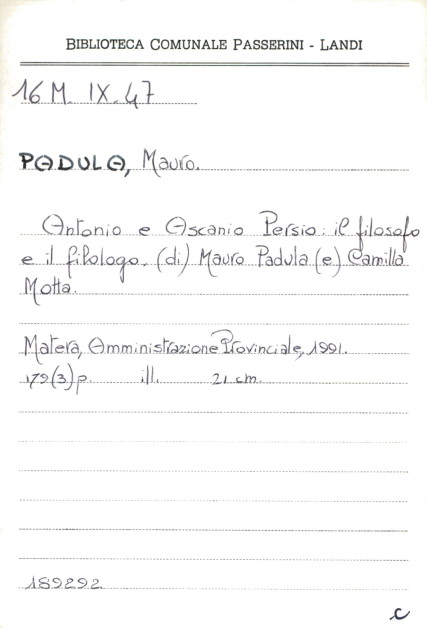 BIBLIOTECA COMUNALE PASSERINI - LANDI
16 M. IX. 47
PADULA, Mauro.
Antonio e Ascanio Persio: il filosofo
e il filologo. (di) Mauro Padula (e) Camilla
Motta.
Matera, Amministrazione Provinciale, 1991.
179(3)p. ill. 21 cm.
189292
C